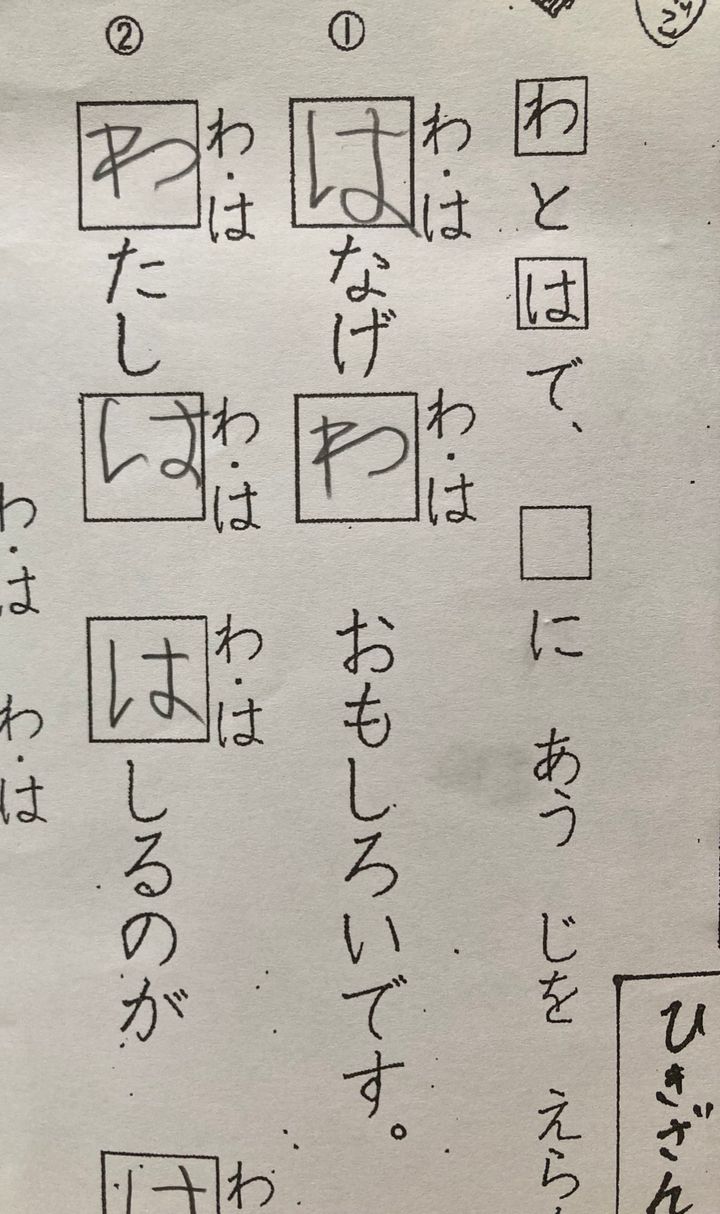 わとはで、□にあう じを えら
① はなげわ おもしろいです。
わ・は わ・は
② わたしは はしるのが は
わ・は わ・は わ・は わ
わ・は わ・は
ひきざん